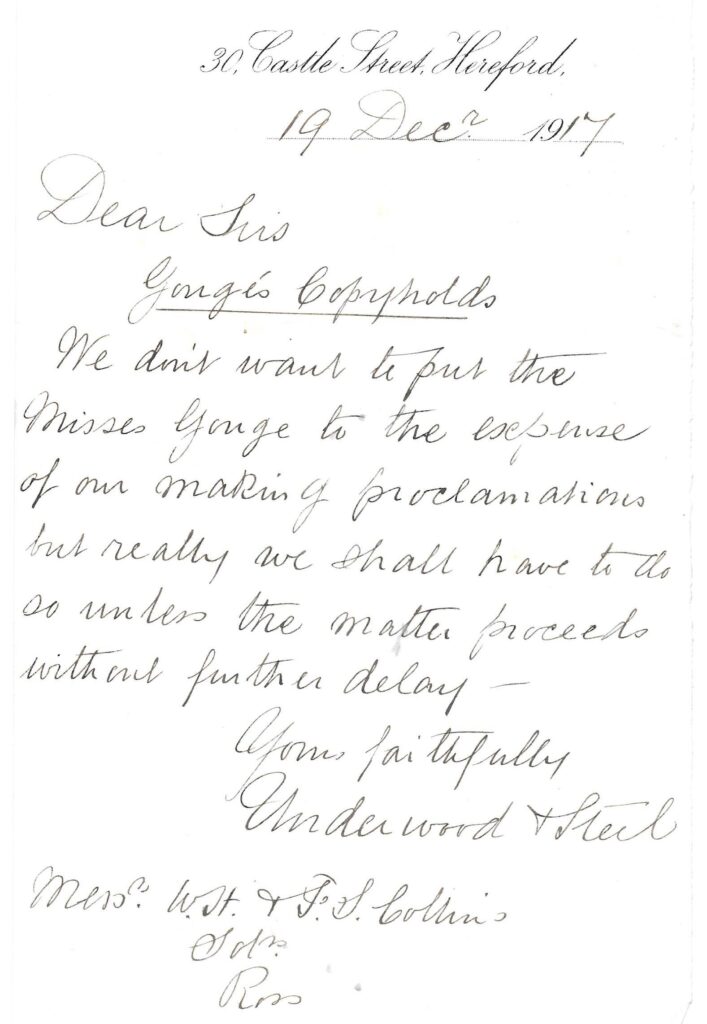 30, Castle Street, Hereford.
19 Decr. 1917
Dear Sirs
Gouge's Copyholds
We don't want to put the
Misses Gouge to the expense
of our making proclamations
but really we shall have to do
so unless the matter proceeds
without further delay —
Yours faithfully
Underwood & Steel
Messrs. W. H. & F. S. Collins
Solrs.
Ross